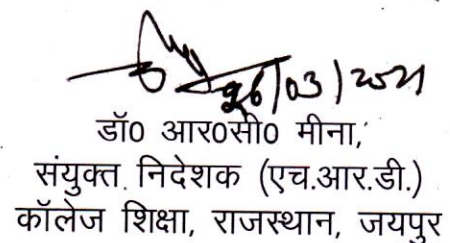 26/03/2021
डॉ0 आर0सी0 मीना,
संयुक्त निदेशक (एच.आर.डी.)
कॉलेज शिक्षा, राजस्थान, जयपुर